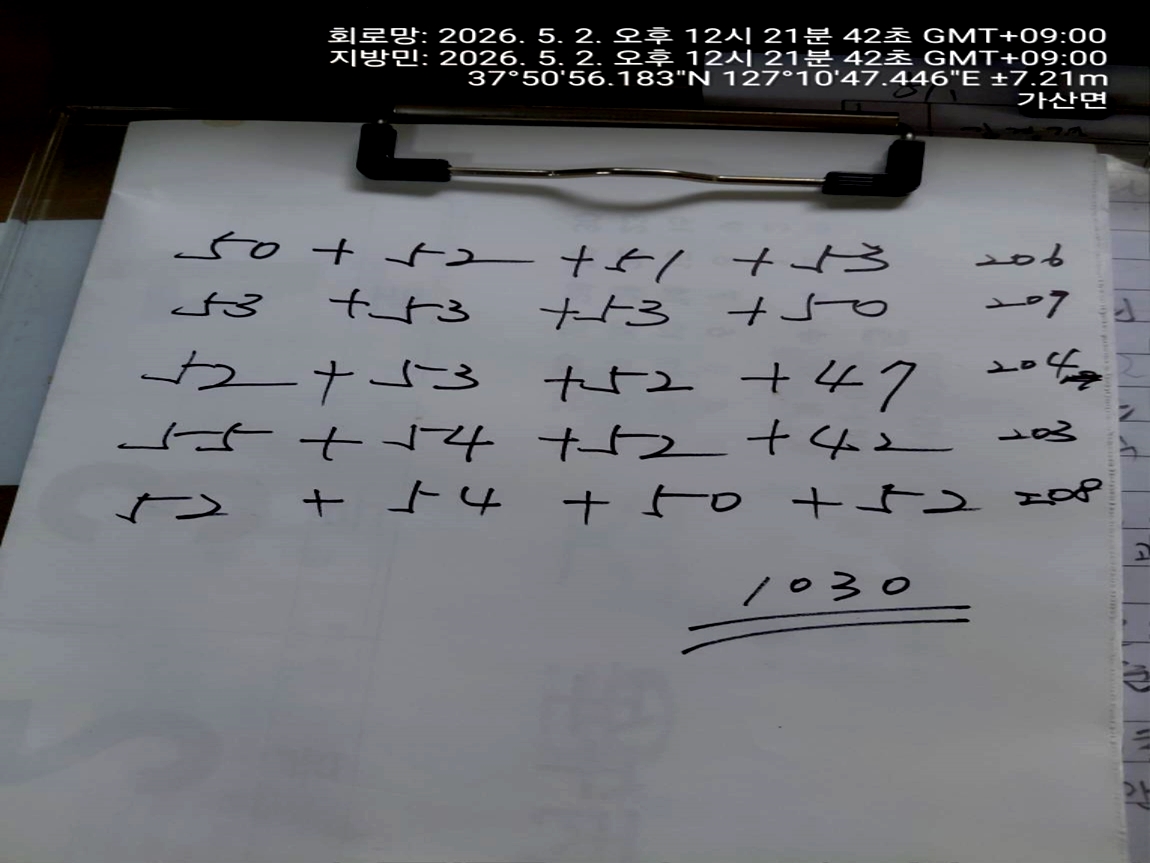 회로망: 2026. 5. 2. 오후 12시 21분 42초 GMT+09:00
지방민: 2026. 5. 2. 오후 12시 21분 42초 GMT+09:00
37°50'56.183"N 127°10'47.446"E ±7.21m
가산면
50 + 52 + 51 + 53 206
53 + 53 + 53 + 50 209
52 + 53 + 52 + 47 204
55 + 54 + 52 + 42 203
52 + 54 + 50 + 52 208
1030